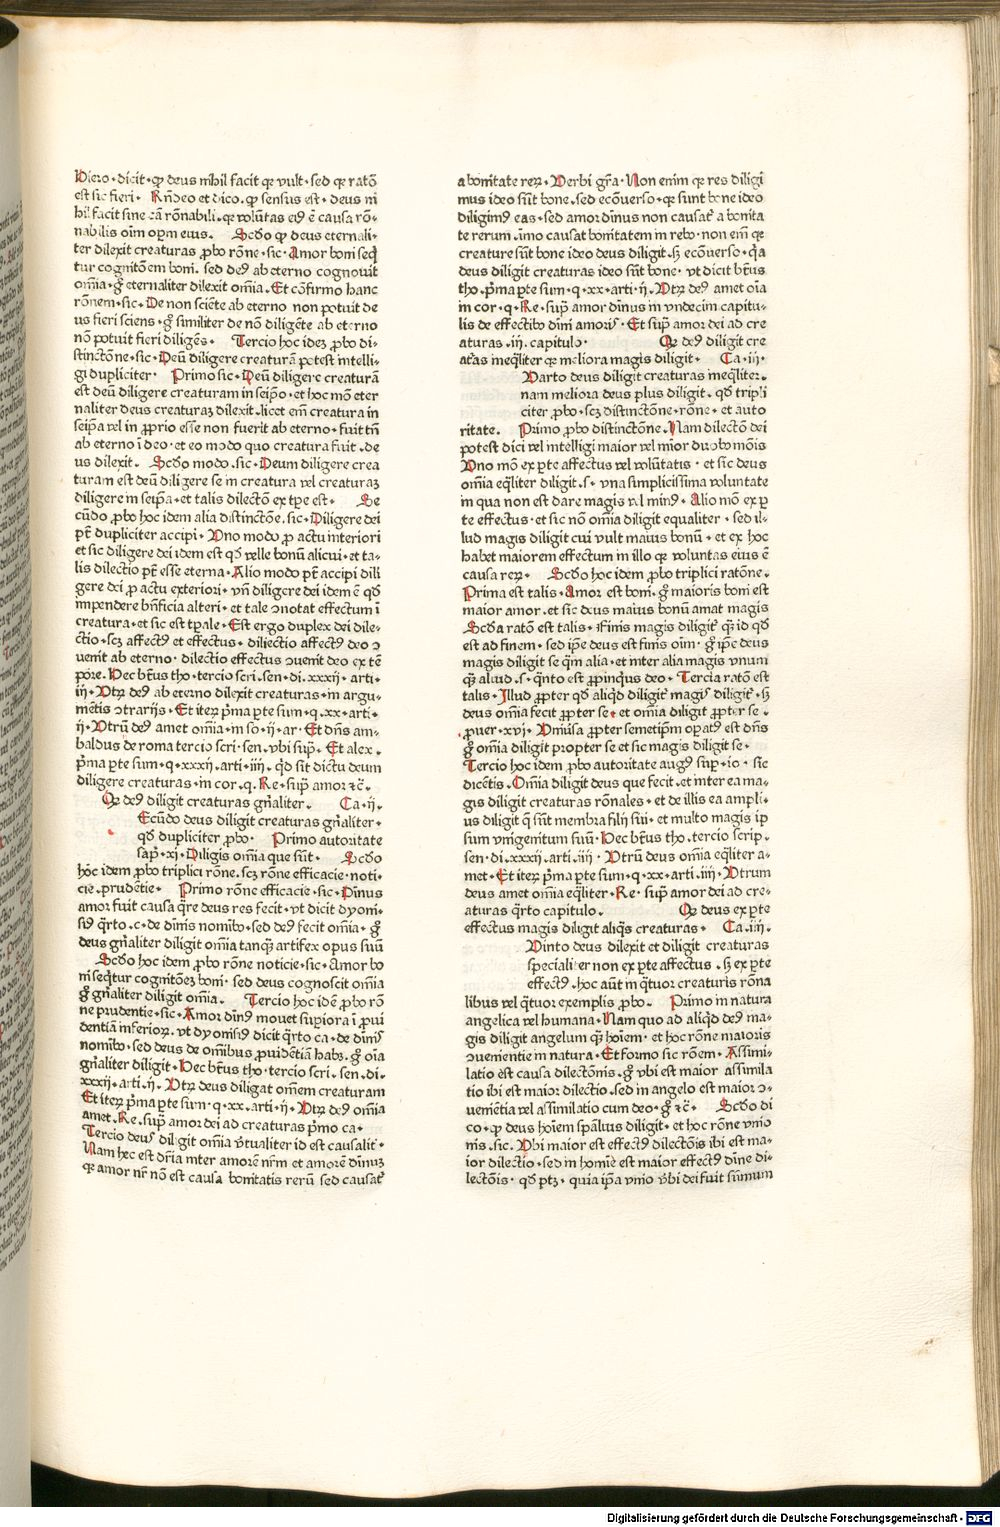 Piero · dicit · ꝙ deus nihil facit q̄ꝛ vult · sed q̄ꝛ ratō
est sic fieri · Rn̄deo et dico · ꝙ sensus est · deus ni
hil facit sine cā rōnabili · q̄ꝛ volūtas eiꝰ ē causa rō-
nabilis oīm oꝑm eius · Scd̄o ꝙ deus eternali-
ter dilexit creaturas ꝓbo rōne · sic · Amor boni seq̄
tur cognitōem boni · sed deꝰ ab eterno cognouit
om̄ia · gͦ eternaliter dilexit om̄ia · Et cōfirmo hanc
rōnem · sic · De non sciēte ab eterno non potuit de
us fieri sciens · gͦ similiter de nō diligēte ab eterno
nō potuit fieri diligēs · Tercio hoc ideꝫ ꝓbo di-
stinctōne · sic · Deū diligere creaturā potest intelli-
gi dupliciter · Primo sic · Deū diligere creaturā
est deū diligere creaturam in seipo · et hoc mō eter
naliter deus creaturaꝫ dilexit · licet em̄ creatura in
seipa vel in ꝓprio esse non fuerit ab eterno · fuit tn̄
ab eterno ī deo · et eo modo quo creatura fuit · de
us dilexit · Scd̄o modo · sic · Deum diligere crea
turam est deū diligere se in creatura vel creaturaꝫ
diligere in seipa · et talis dilectō ex tꝑe est · Se
cūdo ꝓbo hoc idem alia distinctōne · sic · Diligere dei
pt̄ dupliciter accipi · Uno modo ꝓ actu interiori
et sic diligere dei idem est qd̄ velle bonū alicui · et ta-
lis dilectio pt̄ esse eterna · Alio modo pt̄ accipi dili
gere dei ꝓ actu exteriori · vn̄ diligere dei idem ē qd̄
impendere bn̄ficia alteri · et tale ↄnotat effectum ī
creatura · et sic est tꝑale · Est ergo duplex dei dile-
ctio · scꝫ affectꝰ et effectus · dilectio affectꝰ deo ↄ
uenit ab eterno · dilectio effectus ↄuenit deo ex tē
pore · Hec bt̄us tho · tercio scri · sen · di · xxxij · arti ·
ij · Utꝝ deꝰ ab eterno dilexit creaturas · in argu-
mētis ↄtrarijs · Et iteꝝ p̄ma ꝑte sum · q · xx · arti ·
ij · Utrū deꝰ amet om̄ia · in so · ij · ar · Et dn̄s am-
baldus de roma tercio scri · sen · vbi supͣ · Et alex ·
p̄ma ꝑte sum · q · xxxij · arti · iiij · qd̄ sit dictu deum
diligere creaturas · in cor · q · Re · supͣ amor ⁊c̄ ·
Qꝛ deꝰ diligit creaturas gn̄aliter · Ca · ij ·
Ecūdo deus diligit creaturas gn̄aliter ·
qd̄ dupliciter ꝓbo · Primo autoritate
sap̄ · xi · Diligis om̄ia que sūt · Scd̄o
hoc idem ꝓbo triplici rōne · scꝫ rōne efficacie · noti-
cie · prudētie · Primo rōne efficacie · sic · Diuinus
amor fuit causa q̄re deus res fecit · vt dicit dyoni-
siꝰ q̄rto · c · de diuīs nomībꝰ · sed deꝰ fecit om̄ia · gͦ
deus gn̄aliter diligit om̄ia tanqꝫ artifex opus suū
Scd̄o hoc idem ꝓbo rōne noticie · sic · Amor bo
ni seq̄tur cognitōeꝫ boni · sed deus cognoscit om̄ia
gͦ gn̄aliter diligit om̄ia · Tercio hoc idē ꝓbo rō
ne prudentie · sic · Amor diuinꝰ mouet suꝑiora ī ꝓui
dentiā inferioꝝ · vt dyonisiꝰ dicit q̄rto ca · de diuīs
nomībꝰ · sed deus de om̄ibus ꝓuidētiā habꝫ · gͦ oīa
gn̄aliter diligit · Hec bt̄us tho · tercio scri · sen · di ·
xxxij · arti · ij · Utꝝ deus diligat om̄em creaturam
Et iteꝝ p̄ma ꝑte sum · q · xx · arti · ij · Utꝝ deꝰ om̄ia
amet · Re · supͣ amor dei ad creaturas p̄mo ca ·
Tercio deus diligit om̄ia v̄tualiter id est causalit̄ ·
Nam hec est dr̄ia inter amorē nr̄m et amorē diuinuꝫ
q̄ꝛ amor nr̄ nō est causa bonitatis rerū sed causat̄
a bonitate reꝝ · Verbi gr̄a · Non enim q̄ꝛ res diligi
mus ideo sūt bone · sed ecōuerso · q̄ꝛ sunt bone ideo
diligimꝰ eas · sed amor diuinus non causat̄ a bonita
te rerum · imo causat bonitatem in rebꝰ · non em̄ q̄ꝛ
creature sūt bone ideo deus diligit · sꝫ ecōuerso · q̄a
deus diligit creaturas ideo sūt bone · vt dicit bt̄us
tho · p̄ma ꝑte sum · q · xx · arti · ij · Utꝝ deꝰ amet oīa
in cor · q · Re · supͣ amor diuinus in vndecim capitu-
lis de effectibꝰ diuini amoris · Et supͣ amor dei ad cre
aturas · iij · capitulo · Qꝛ deꝰ diligit cre
at̄as ineq̄liter q̄ꝛ meliora magis diligit · Ca · iij ·
Uarto deus diligit creaturas ineq̄liter ·
nam meliora deus plus diligit · qd̄ tripli
citer ꝓbo · scꝫ distinctōne · rōne · et auto
ritate · Primo ꝓbo distinctōne · Nam dilectō dei
potest dici vel intelligi maior vel minor duobꝰ mōis
Uno mō ex ꝑte affectus vel volūtatis · et sic deus
om̄ia eq̄liter diligit · s · vna simplicissima voluntate
in qua non est dare magis vel minꝰ · Alio mō ex ꝑ
te effectus · et sic nō om̄ia diligit equaliter · sed il-
lud magis diligit cui vult maius bonū · et ex hoc
habet maiorem effectum in illo q̄ꝛ voluntas eius ē
causa reꝝ · Scd̄o hoc idem ꝓbo triplici ratōne ·
Prima est talis · Amor est boni · gͦ maioris boni est
maior amor · et sic deus maius bonū amat magis
Scd̄a ratō est talis · Finis magis diligit̄ qꝫ id qd̄
est ad finem · sed ip̄e deus est finis oīm · gͦ ip̄e deus
magis diligit se q̄m alia · et inter alia magis vnum
qꝫ aliud · s · q̄nto est ꝓpinq̄us deo · Tercia ratō est
talis · Illud ꝓpter qd̄ aliqd̄ diligit̄ magis diligit̄ · sꝫ
deus om̄ia fecit ꝓpter se · et om̄ia diligit ꝓpter se ·
ꝓuer · xvi · Vniūsa ꝓpter semetip̄m oꝑatꝰ est dn̄s
gͦ om̄ia diligit propter se et sic magis diligit se ·
Tercio hoc idem ꝓbo autoritate augꝰ suꝑ · io · sic
dicētis · Om̄ia diligit deus que fecit · et inter ea ma-
gis diligit creaturas rōnales · et de illis ea ampli-
us diligit q̄ sūt membra filij sui · et multo magis ip
sum vnigenitum suū · Hec bt̄us tho · tercio scrip ·
sen · di · xxxij · arti · iiij · Utrū deus om̄ia eq̄liter a-
met · Et iteꝝ p̄ma ꝑte sum · q · xx · arti · iij · Utrum
deus amet om̄ia eq̄liter · Re · supͣ amor dei ad cre-
aturas q̄rto capitulo · Qꝛ deus ex ꝑte
effectus magis diligit aliq̄s creaturas · Ca · iiij ·
Uinto deus dilexit et diligit creaturas
specialiter non ex ꝑte affectus · sꝫ ex ꝑte
effectꝰ · hoc aūt in q̄tuor creaturis rōna
libus vel q̄tuor exemplis ꝓbo · Primo in natura
angelica vel humana · Nam quo ad aliqd̄ deꝰ ma-
gis diligit angelum qꝫ hoīem · et hoc rōne maioris
ↄuenientie in natura · Et formo sic rōem · Assimi-
latio est causa dilectōnis · gͦ vbi est maior assimila
tio ibi est maior dilectio · sed in angelo est maior ↄ-
uenientia vel assimilatio cum deo · gͦ ⁊c̄ · Scd̄o di
co · ꝙ deus hoīem sp̄alius diligit · et hoc rōne vnio
nis · sic · Ubi maior est effectꝰ dilectōis ibi est ma-
ior dilectio · sed in homīe est maior effectꝰ diuine di-
lectōis · qd̄ ptꝫ · quia ip̄a vnio v̄bi dei fuit summum
Digitalisierung gefördert durch die Deutsche Forschungsgemeinschaft - DFG